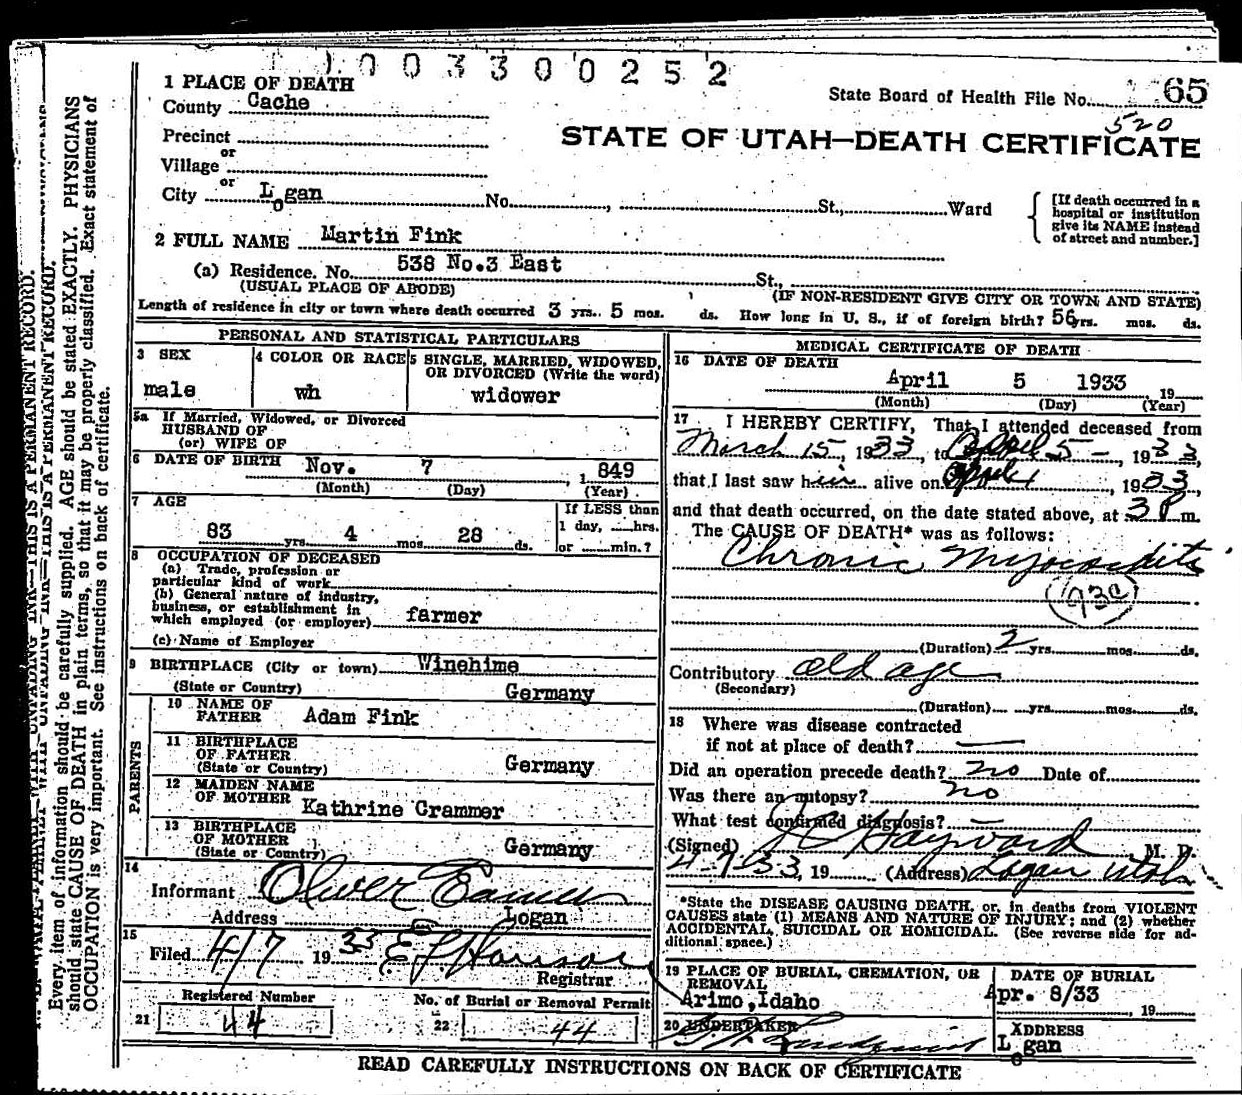 0 0 3 3 0 0 2 5 2
1 PLACE OF DEATH
County Cache
State Board of Health File No. 65
520
Precinct
or
Village
or
City Logan No. , St., Ward
STATE OF UTAH—DEATH CERTIFICATE
[If death occurred in a
hospital or institution
give its NAME instead
of street and number.]
2 FULL NAME Martin Fink
(a) Residence. No. 538 No.3 East St.,
(USUAL PLACE OF ABODE) (IF NON-RESIDENT GIVE CITY OR TOWN AND STATE)
Length of residence in city or town where death occurred 3 yrs. 5 mos. ds. How long in U. S., if of foreign birth? 56 yrs. mos. ds.
PERSONAL AND STATISTICAL PARTICULARS
3 SEX
male
4 COLOR OR RACE
wh
5 SINGLE, MARRIED, WIDOWED,
OR DIVORCED (Write the word)
widower
5a If Married, Widowed, or Divorced
HUSBAND OF
(or) WIFE OF
6 DATE OF BIRTH Nov. 7 , 1 849
(Month) (Day) (Year)
7 AGE
83 yrs. 4 mos. 28 ds.
If LESS than
1 day, hrs.
or min.?
8 OCCUPATION OF DECEASED
(a) Trade, profession or
particular kind of work
(b) General nature of industry,
business, or establishment in
which employed (or employer) farmer
(c) Name of Employer
9 BIRTHPLACE (City or town) Winehime
(State or Country) Germany
PARENTS
10 NAME OF
FATHER Adam Fink
11 BIRTHPLACE
OF FATHER
(State or Country) Germany
12 MAIDEN NAME
OF MOTHER Kathrine Crammer
13 BIRTHPLACE
OF MOTHER
(State or Country) Germany
14
Informant Oliver
Address Logan
15
Filed 4/7 19 33
Registrar
Registered Number
21 44
No. of Burial or Removal Permit
22 44
MEDICAL CERTIFICATE OF DEATH
16 DATE OF DEATH
April 5 1933 19
(Month) (Day) (Year)
17 I HEREBY CERTIFY, That I attended deceased from
March 15, 1933, to April 5 - , 1933,
that I last saw him alive on April , 1933,
and that death occurred, on the date stated above, at 3 P m.
The CAUSE OF DEATH* was as follows:
Chronic Myocarditis
(Duration) 2 yrs. mos. ds.
Contributory old age
(Secondary)
(Duration) yrs. mos. ds.
18 Where was disease contracted
if not at place of death? —
Did an operation precede death? no Date of
Was there an autopsy? no
What test confirmed diagnosis? —
(Signed) Hayward M. D.
4-7-33, 19 (Address) Logan Utah
*State the DISEASE CAUSING DEATH, or, in deaths from VIOLENT
CAUSES state (1) MEANS AND NATURE OF INJURY; and (2) whether
ACCIDENTAL, SUICIDAL OR HOMICIDAL. (See reverse side for ad-
ditional space.)
19 PLACE OF BURIAL, CREMATION, OR
REMOVAL
Arimo,Idaho
DATE OF BURIAL
Apr. 8/33
, 19
20 UNDERTAKER
ADDRESS
Logan
READ CAREFULLY INSTRUCTIONS ON BACK OF CERTIFICATE
Every item of information should be carefully supplied. AGE should be stated EXACTLY. PHYSICIANS
should state CAUSE OF DEATH in plain terms, so that it may be properly classified. Exact statement of
OCCUPATION is very important. See instructions on back of certificate.